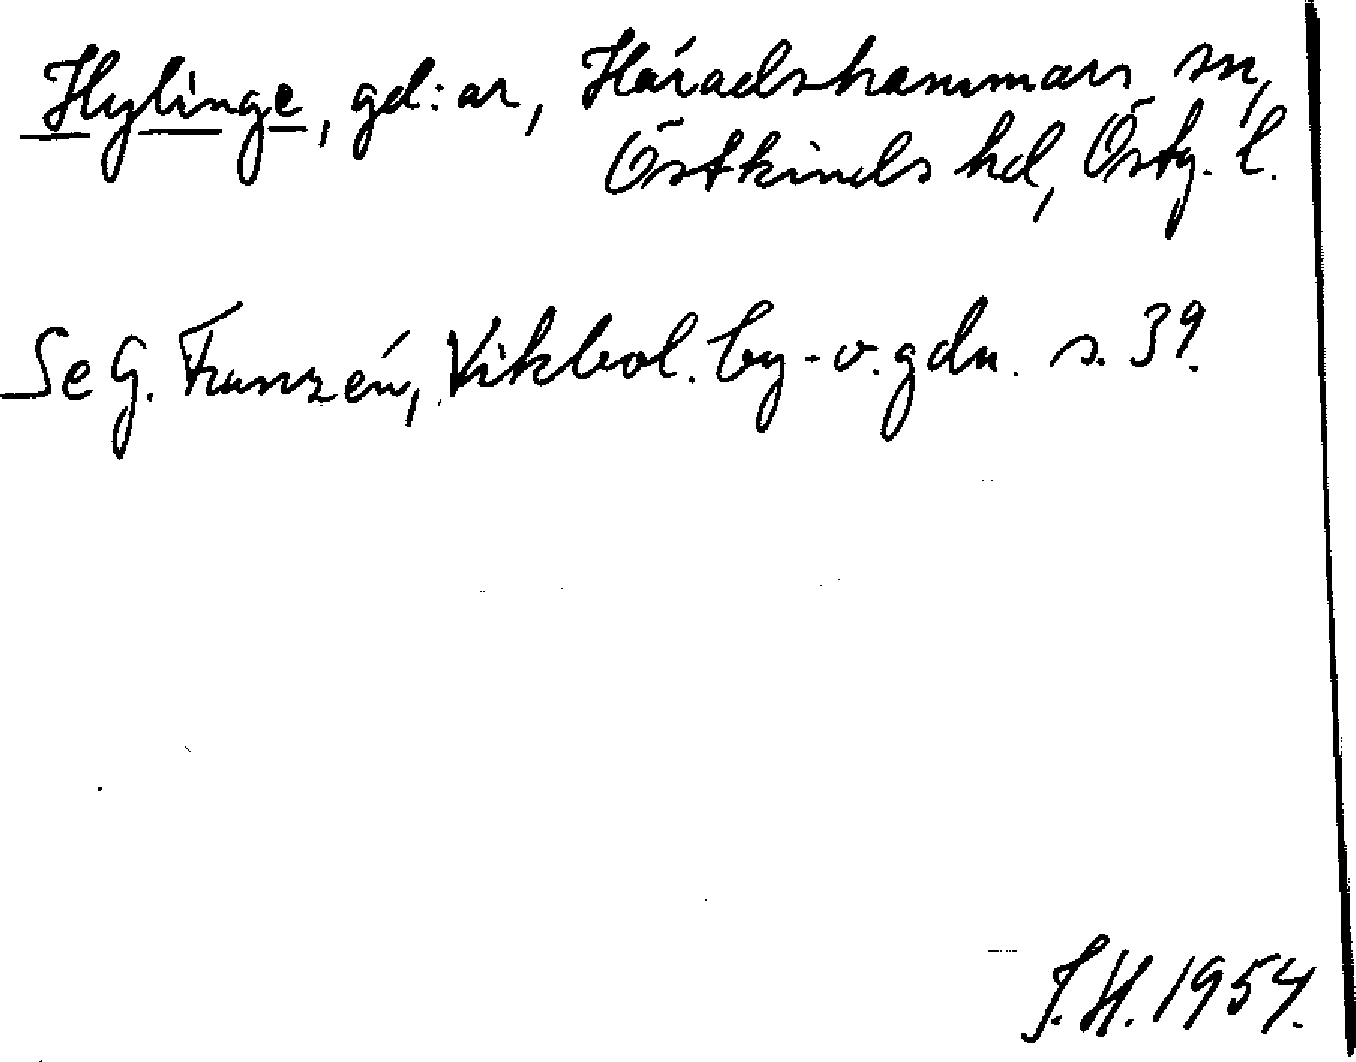 Hylinge, gd:ar, Häradshammars sn,
Östkinds hd, Östg. l.
Se G. Franzén, Vikbol. by- o. gdn. s. 39.
J.H. 1954.